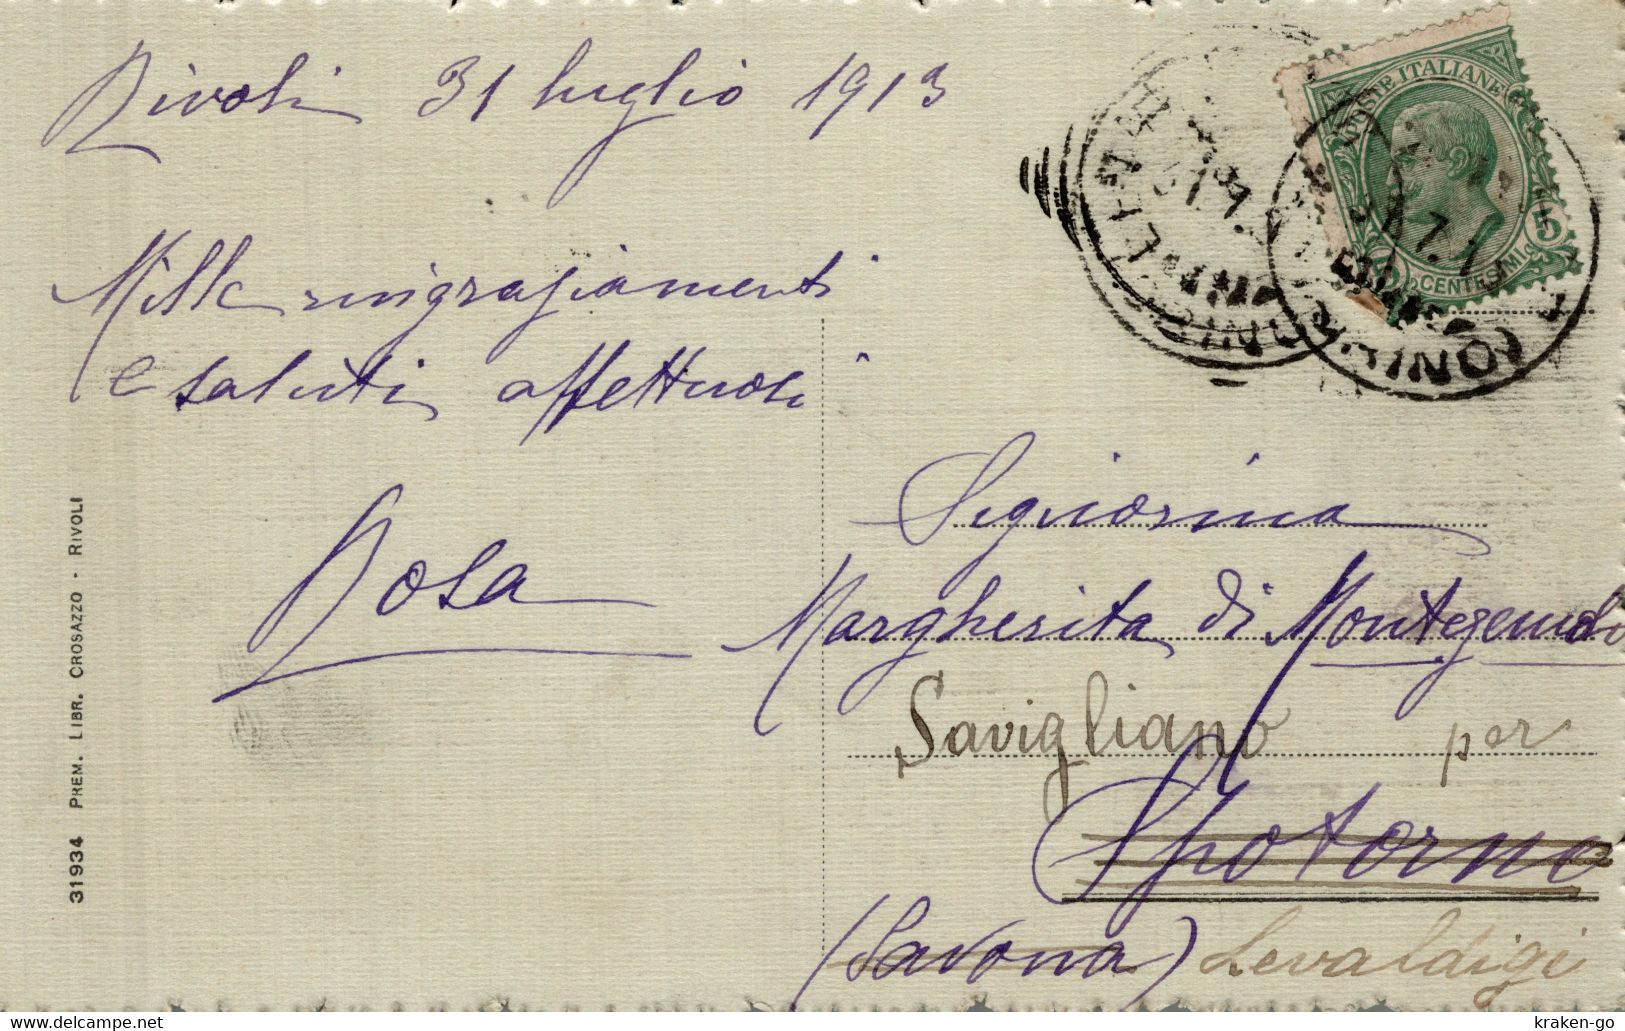 Rivoli 31 luglio 1913
Mille ringraziamenti
e saluti affettuosi
Rosa
31934 PREM. LIBR. CROSAZZO - RIVOLI
POSTE ITALIANE
5
CENTESIMI
TORINO
Signorina
Margherita di Montezemolo
Savigliano per
Spotorno
(Savona) Levaldigi
kraken-go